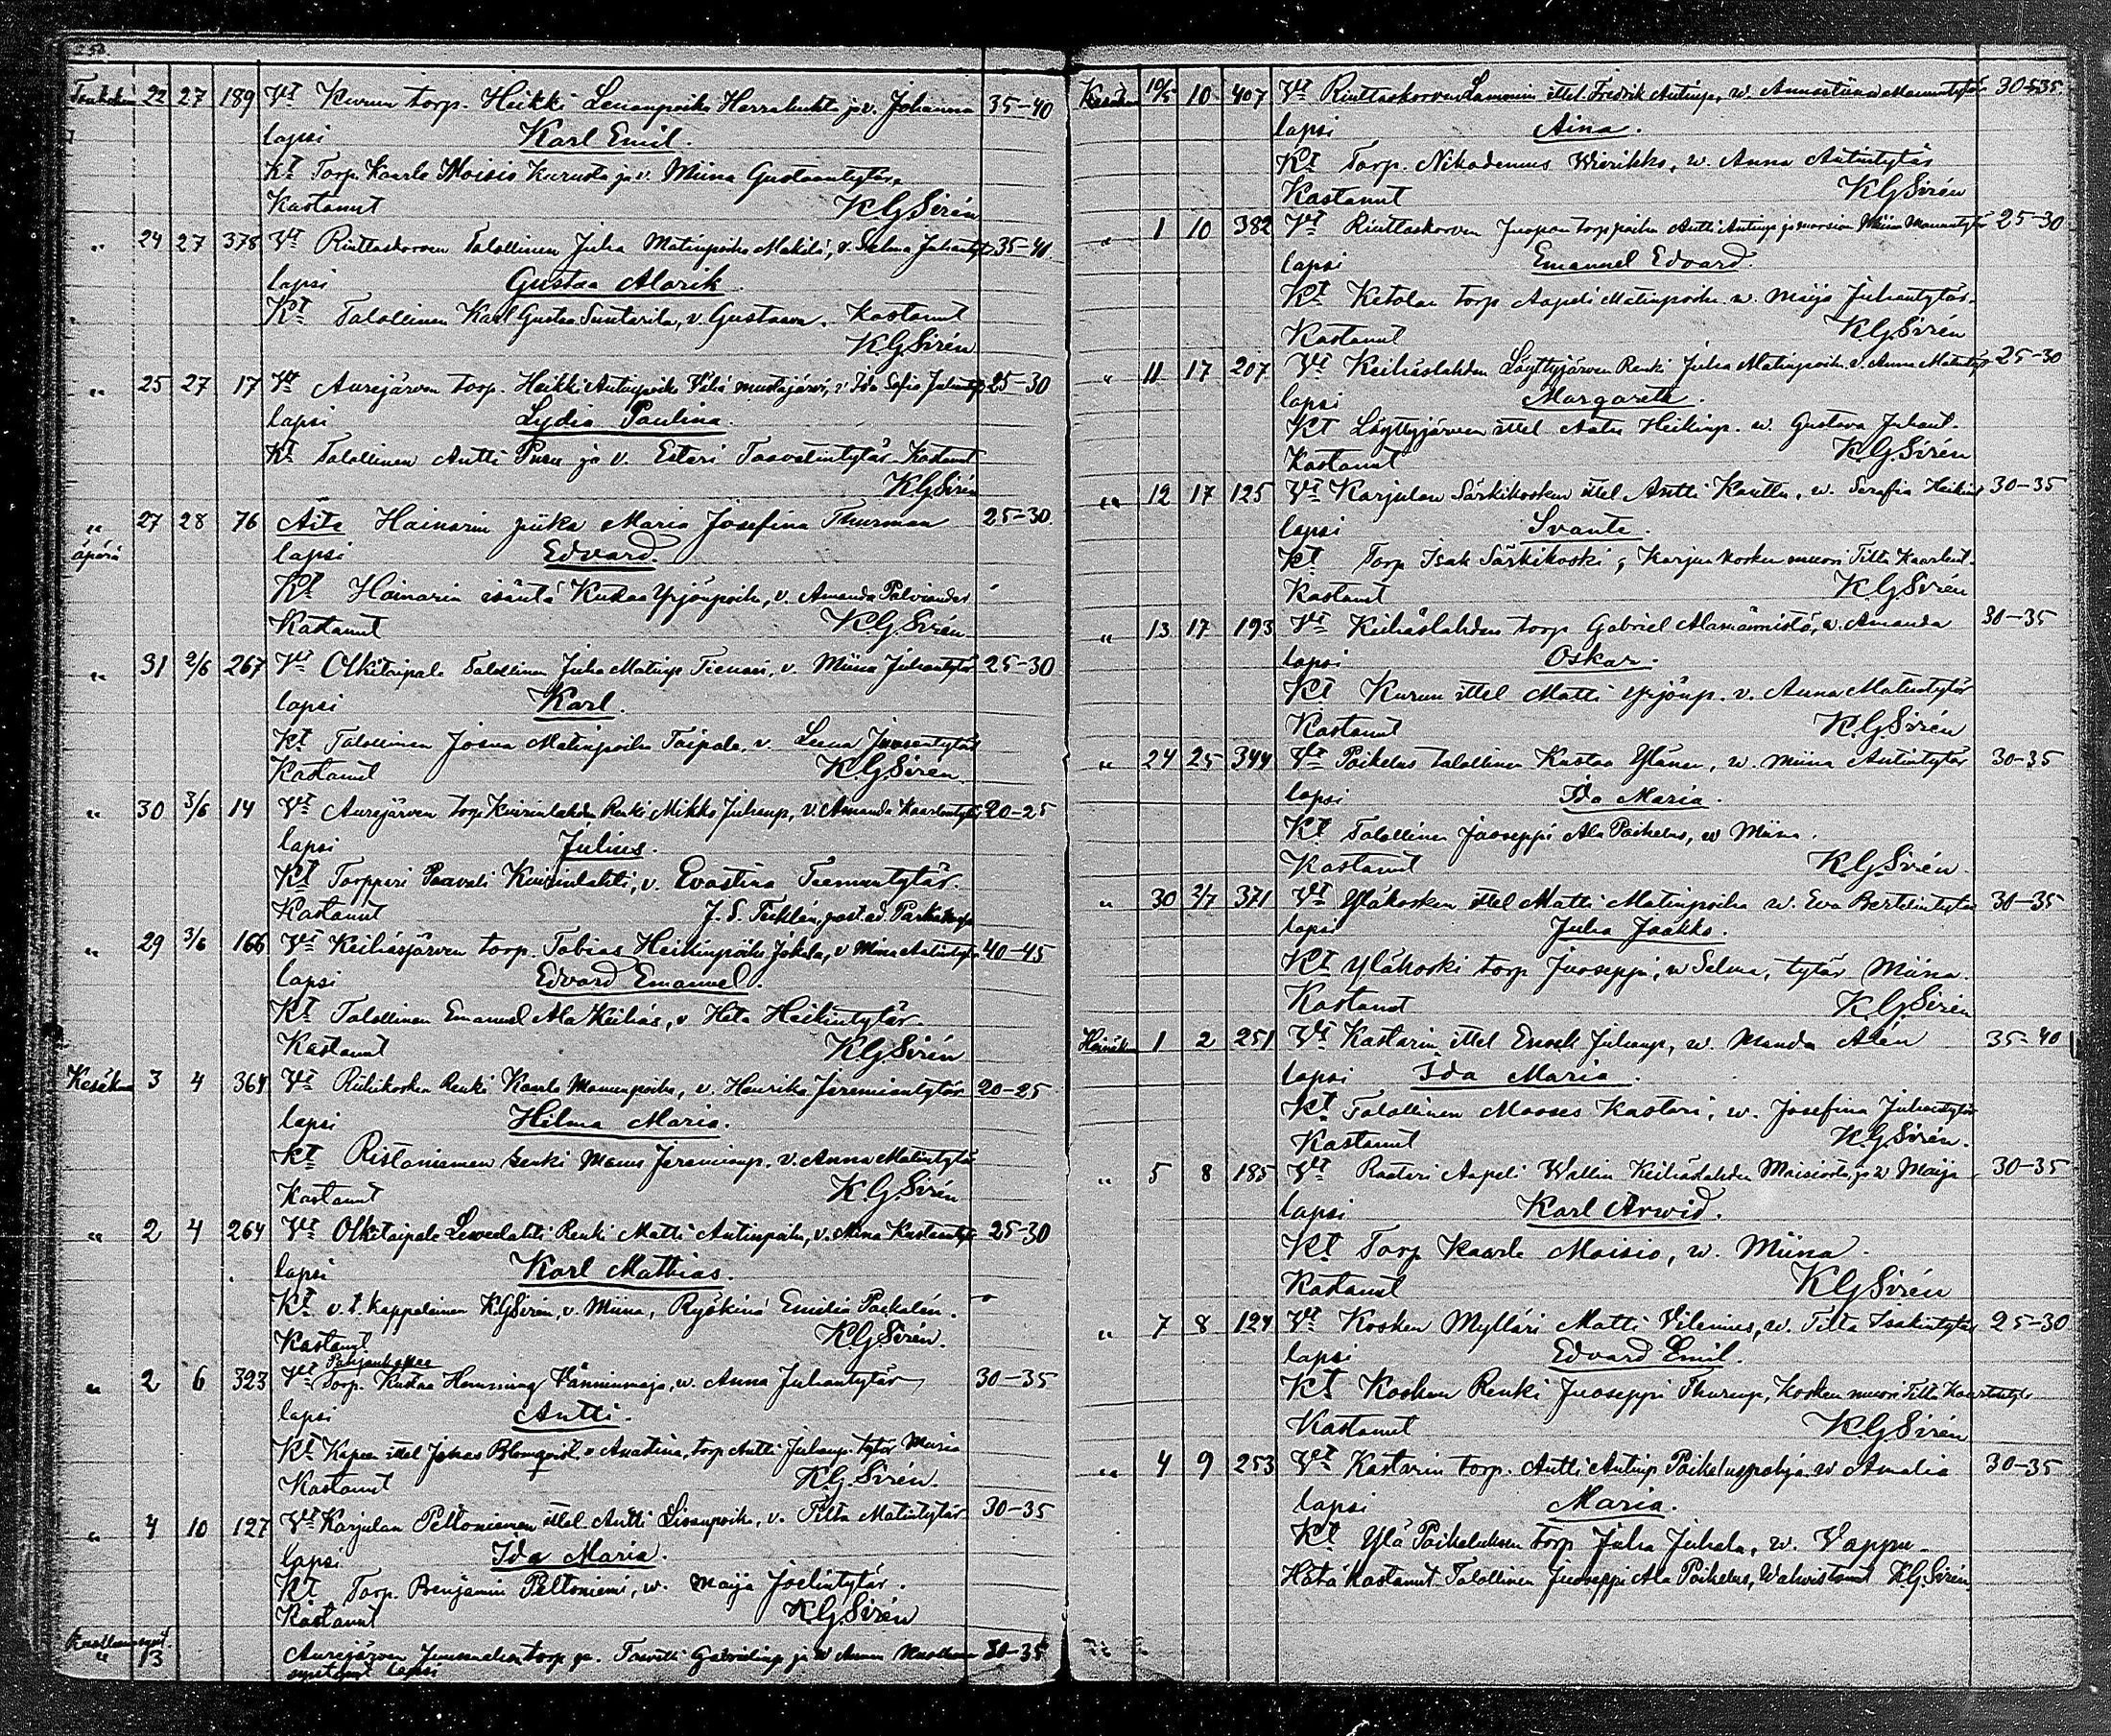 22 27 189 Vt Kurun torp. Heikki Leenanpoika Herralahti ja v. Johanna 35-40
lapsi Karl Emil.
Kt Torp. Kaarle Moisio Kurusta ja v. Miina Gustaantytär.
Kastanut KGSirén
" 24 27 378 Vt Riuttaskorven Talollinen Juha Matinpoika Mäkelä, v. Selma Juhantytär 35-40
lapsi Gustaa Alarik.
Kt Talollinen Karl Gustaa Suntarila, v. Gustaava. Kastanut
K.G.Sirén
" 25 27 17 Vt Aurejärven torp. Heikki Antinpoika Vähä mustajärvi, v. Ida Sofia 25-30
lapsi Lydia Paulina.
Kt Talollinen Antti Puru ja v. Esteri Taavetintytär Kastanut
KGSirén
" 27 28 76 Äiti Hainarin piika Maria Josefina Thurman 25-30
äpärä lapsi Edvard
Kt Hainarin isäntä Kustaa Yrjönpoika, v. Amanda
Kastanut K.G.Sirén
" 31 2/6 267 Vt Olkitaipale Talollinen Juha Matinp. v. Miina Juhantytär 25-30
lapsi Karl.
Kt Talollinen Josua Matinpoika Taipale, v. Leena
Kastanut K.G.Sirén
" 30 3/6 14 Vt Aurejärven torp. Kuirinlahden Renki Mikko Juhanp, v. Amanda Kaarlentytär 20-25
lapsi Julius.
Kt Torppari Paavali Kuirinlahti, v. Evastina Tuomantytär.
Kastanut J. S.
" 29 3/6 166 Vt Keihäsjärven torp. Tobias Heikinpoika Jokela, v Miina Antintytär 40-45
lapsi Edvard Emanuel.
Kt Talollinen Emanuel Ala Keihäs, v. Heta Heikintytär.
Kastanut K.G.Sirén
Kesäkuu 3 4 364 Vt Riihikosken Renki Kaarle Manunpoika, v. Henrika Jeremiantytär 20-25
lapsi Hilma Maria.
Kt Ristaniemen Renki Manu Jeremianp. v. Anna Matintytär
Kastanut K.G.Sirén
" 2 4 264 Vt Olkitaipale Renki Matti Antinpoika, v. Miina Kustaantytär 25-30
lapsi Karl Mathias.
Kt v. t. Kappalainen K.G.Sirén, v. Miina, Emilia
Kastanut K.G.Sirén.
" 2 6 323 Vt Torp. Kustaa v. Anna Juhantytär 30-35
lapsi Antti.
Kt Kapeen ittel Jonas Blomqvist v Anastiina, torp. Antti Juhanp. tytär Maria
Kastanut K.G.Sirén.
" 4 10 127 Vt Karjulan Peltoniemen ittel. Antti Liisanpoika, v. Tilta Matintytär 30-35
lapsi Ida Maria.
Kt Torp. Benjamin Peltoniemi, w. Maija Joelintytär.
Kastanut K.G.Sirén
Kuolleena synt.
" 13 Aurejärven torp. Taavetti Gabrielinp. ja w Anna 30-35
syntynyt lapsi
Kesäkuu 10/5 10 407 Vt Riuttaskorven Lammin ittel. Fredrik Antinp, w. Annastiina Manuntytär 30-35
lapsi Aina.
Kt Torp. Nikodemus Wierikko, w. Anna Antintytär
Kastanut KGSirén
" 1 10 382 Vt Riuttaskorven Juopan torp.poika Antti Antinp ja morsian Miina Manuntytär 25-30
lapsi Emanuel Edvard.
Kt Ketolan torp Aapeli Matinpoika w. Maija Juhantytär.
Kastanut K.G.Sirén
" 11 17 207 Vt Keihäslahden Löyttyjärven Renki Juha Matinpoika v. Anna Matintytär 25-30
lapsi Margareta.
Kt Löyttyjärven ittel Antti Heikinp. w. Gustava Juhant.
Kastanut K.G.Sirén
" 12 17 125 Vt Karjulan Särkikosken ittel Antti w. Serafia 30-35
lapsi Svante.
Kt Torp Isak Särkikoski, Karjun kosken muori Tilta Kaarlent.
Kastanut K.G.Sirén
" 13 17 193 Vt Keihäslahden torp Gabriel w. Amanda 30-35
lapsi Oskar.
Kt Kurun ittel Matti Yrjönp. v. Anna Matintytär
Kastanut K.G.Sirén
" 24 25 344 Vt Poikelus talollinen Kustaa Yläinen, w. Miina Antintytär 30-35
lapsi Ida Maria.
Kt Talollinen Juoseppi Ala Poikelus, w Miina.
Kastanut K.G.Sirén.
" 30 2/7 371 Vt Yläkosken ittel Matti Matinpoika w. Eva Bertelintytär 30-35
lapsi Juha Jaakko.
Kt Yläkoski torp Juoseppi, w Selma, tytär Miina.
Kastanut K.G.Sirén
Heinäkuu 1 2 251 Vt Kastarin ittel Enock Juhanp, w. Manda Alén 35-40
lapsi Ida Maria.
Kt Talollinen Mooses Kastari, w. Josefina Juhantytär
Kastanut K.G.Sirén.
" 5 8 185 Vt Raatari Aapeli Wallin Keihäslahden Moisiosta ja w Maija 30-35
lapsi Karl Arwid.
Kt Torp Kaarle Moisio, w. Miina.
Kastanut K.G.Sirén
" 7 8 124 Vt Kosken Mylläri Matti Vilenius, w. Tilta Isakintytär 25-30
lapsi Edvard Emil.
Kt Kosken Renki Juoseppi Thurnp, Kosken muori Tilta Kaarlentytär
Kastanut K.G.Sirén
" 4 9 253 Vt Kastarin torp. Antti Antinp Poikeluspohja w Amalia 30-35
lapsi Maria.
Kt Ylä Poikeluksen torp Juha Juhala, w. Vappu.
Hätä Kastanut Talollinen Juoseppi Ala Poikelus, Wahvistanut K.G.Sirén